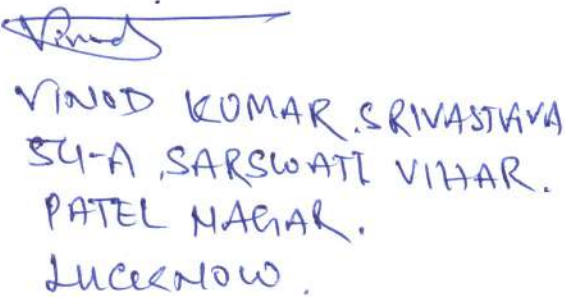 Vinod
VINOD KUMAR. SRIVASTAVA
54-A, SARSWATI VIHAR.
PATEL NAGAR.
LUCKNOW.